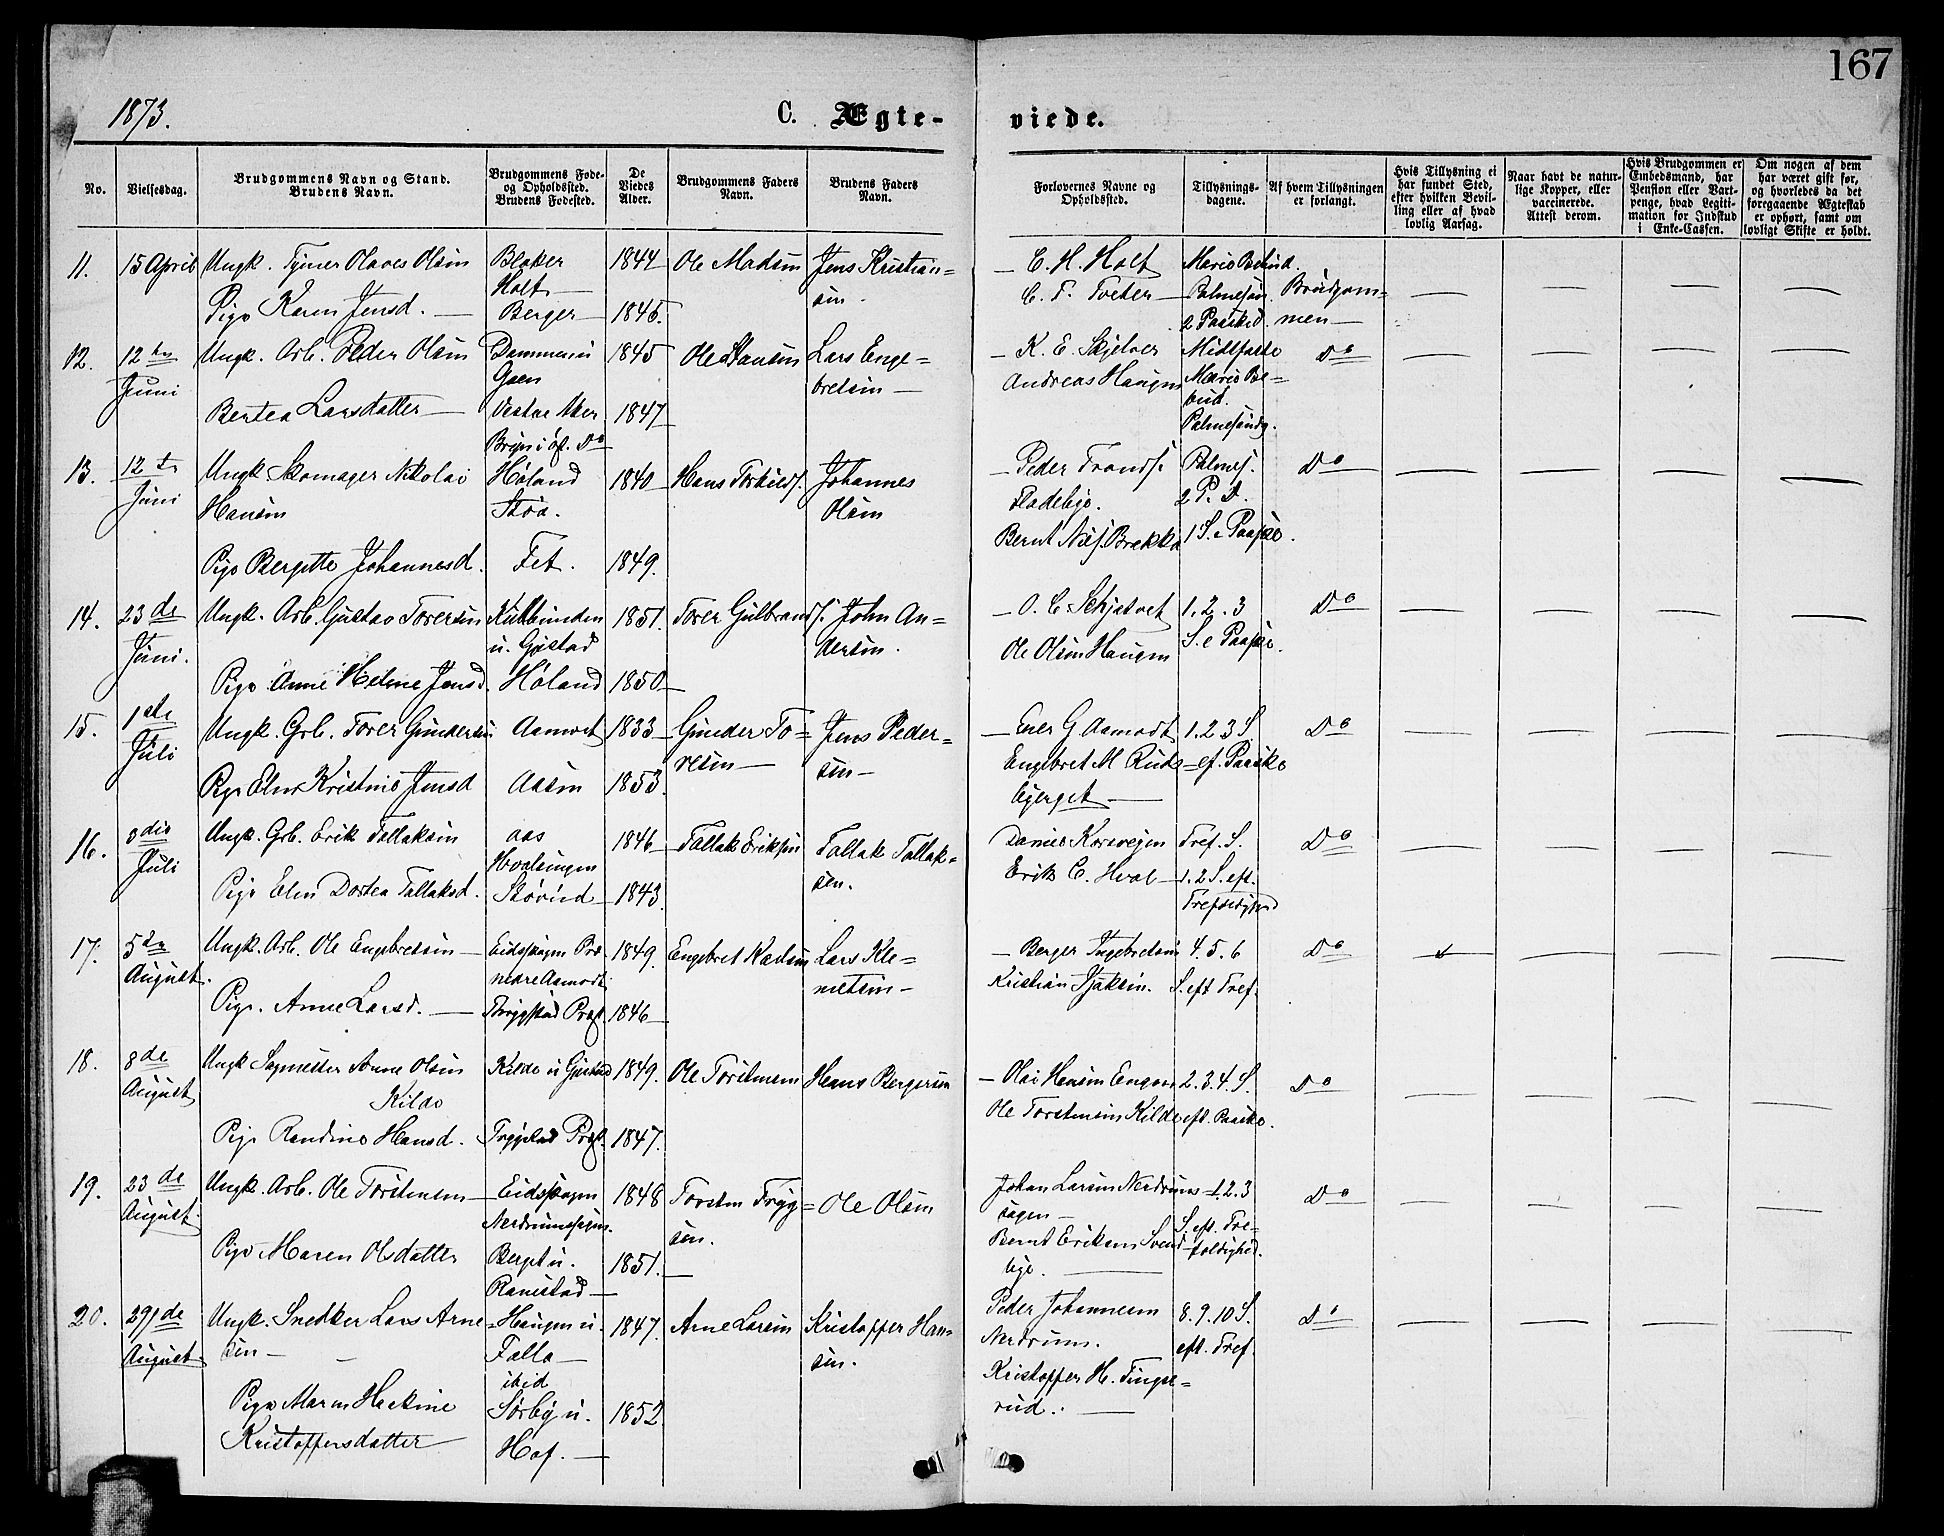 167
1873.
C. Ægte-
viede.
No.
Vielsesdag.
Brudgommens Navn og Stand.
Brudens Navn.
Brudgommens Føde-
og Opholdssted.
Brudens Fødested.
De
Viedes
Alder.
Brudgommens Faders
Navn.
Brudens Faders
Navn.
Forlovernes Navne og
Opholdssted.
Tillysnings-
dagene.
Af hvem Tillysningen
er forlangt.
Hvis Tillysning ei
har fundet Sted,
efter hvilken Bevil-
ling eller af hvad
lovlig Aarsag.
Naar havt de natur-
lige Kopper, eller
vaccinerede.
Attest derom.
Hvis Brudgommen er
Embedsmand, har
Pension eller Vart-
penge, hvad Legiti-
mation for Indskud
i Enke-Cassen.
Om nogen af dem
har været gift før,
og hvorledes da det
foregaaende Ægteskab
er ophørt, samt om
lovligt Skifte er holdt.
11. 15 April Ungk. Olaves Olsen
Pige Karen Jensd.
Blaker
Holt
Berger
1844
1845.
Ole Madsen
Jens Kristian-
sen.
E. H. Holt
C. T. Tveter
Mario Bebud.
Palmesøn.
2 Paasked.
Brudgom-
men
12. 12te
Juni
Ungk. Arb. Peder Olsen
Bertea Larsdatter
Dammen u
Vestre Aker
1845
1847
Ole Hansen
Lars Enge-
bretsen
K. E. Skjelver
Andreas Haugen
Midtfaste
Mario Be-
bud.
Palmesøndg.
Do
13. 12te
Juni
Ungk. Skomager Nikolai
Hansen
Pige Bergitte Johannesd.
Høland
Fet.
1840
1849.
Hans Torkilds.
Johannes
Olsen
Peder Tronds.
Fladeby.
Bernt Nils. Brekka
Palmes.
2 P. D.
1 S. e Paaske.
Do
14. 23de
Juni.
Ungk. Arb. Gustav Toresen
Pige Anne Helene Jensd.
u. Gjestad
Høland
1851.
1850
Torer Gulbrands.
John An-
dersen.
O. C. Skjatvet
Ole Olsen Haugen
1. 2. 3
S. e Paaske.
Do
15. 1ste
Juli
Ungk. Grb. Torer Gundersen
Pige Elen Kristine Jensd
Aamodt
Aasen
1833
1853.
Gunder To-
resen
Jens Peder-
sen
Ener G Aamodt
Engebret M Rude-
bjerget
1. 2 3 S.
ef. Paaske
Do
16. 3die
Juli
Ungk. Grb. Erik Tallaksen
Pige Elen Dortea Tallaksd.
Aas
Hvalsengen
1846
1843
Tallak Eriksen
Tallak Tallak-
sen.
Daniel Korsvegen
Erik C. Hval
Tref. S.
1. 2 S. eft.
Do
17. 5te
August.
Ungk. Arb. Ole Engebretsen
Pige. Anne Larsd.
Eidsskogen Pr
nedre Aamodt
Trygstad Præst
1849.
1846
Engebret Madsen
Lars Kle-
metsen
Berger Ingebretsen
Kristian Isaksen.
4. 5. 6
S. eft Tref.
Do
18. 8de
August
Ungk Sagmester Anne Olsen
Kilde
Pige Randine Hansd.
Kilde u Gjestad
Trygstad Præst.
1849.
1847.
Ole Torstensen
Hans Bergersen
Olai Hansen Engen
Ole Torstensen Kilde
2. 3. 4. S.
eft. Paaske.
Do
19. 23de
August
Ungk. Arb. Ole Torstensen
Pige Maren Olsdatter
Eidsskogen
Nerdrumsengen.
Berget u.
Ramstad
1848
1851.
Torsten Tryg-
sen.
Ole Olsen
Johan Larsen Nerdrums-
engen
Bernt Eriksen Svend-
bye.
1. 2. 3
S. eft. Tre-
foldighed.
Do
20. 29de
August
Ungk. Snedker Lars Arne-
sen
Pige Maren Hectine
Kristoffersdatter
Haugen u.
Falla
ibid
Sørby u.
Hof.
1847.
1852
Arne Larsen
Kristoffer Han-
sen.
Peder Johannesen
Nerdrum.
Kristoffer H. Tingse-
rud.
8. 9. 10 S.
eft. Tref.
Do